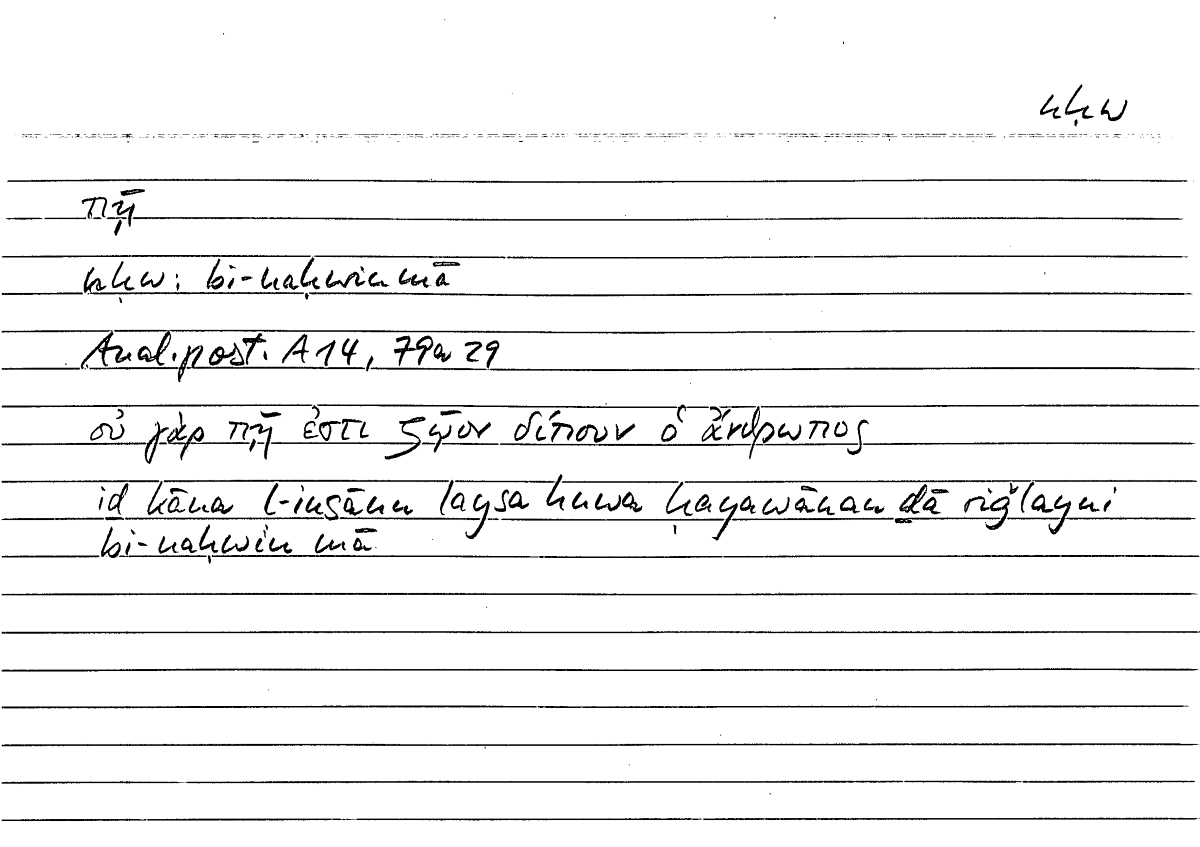 nḥw
πῄ
nḥw: bi-naḥwin mā
Anal. post. A 14, 79a 29
οὐ γὰρ πῄ ἐστι ζῷον δίπουν ὁ ἄνθρωπος
id kāna l-insānu laysa huwa ḥayawānan ḏā riǧlayni
bi-naḥwin mā